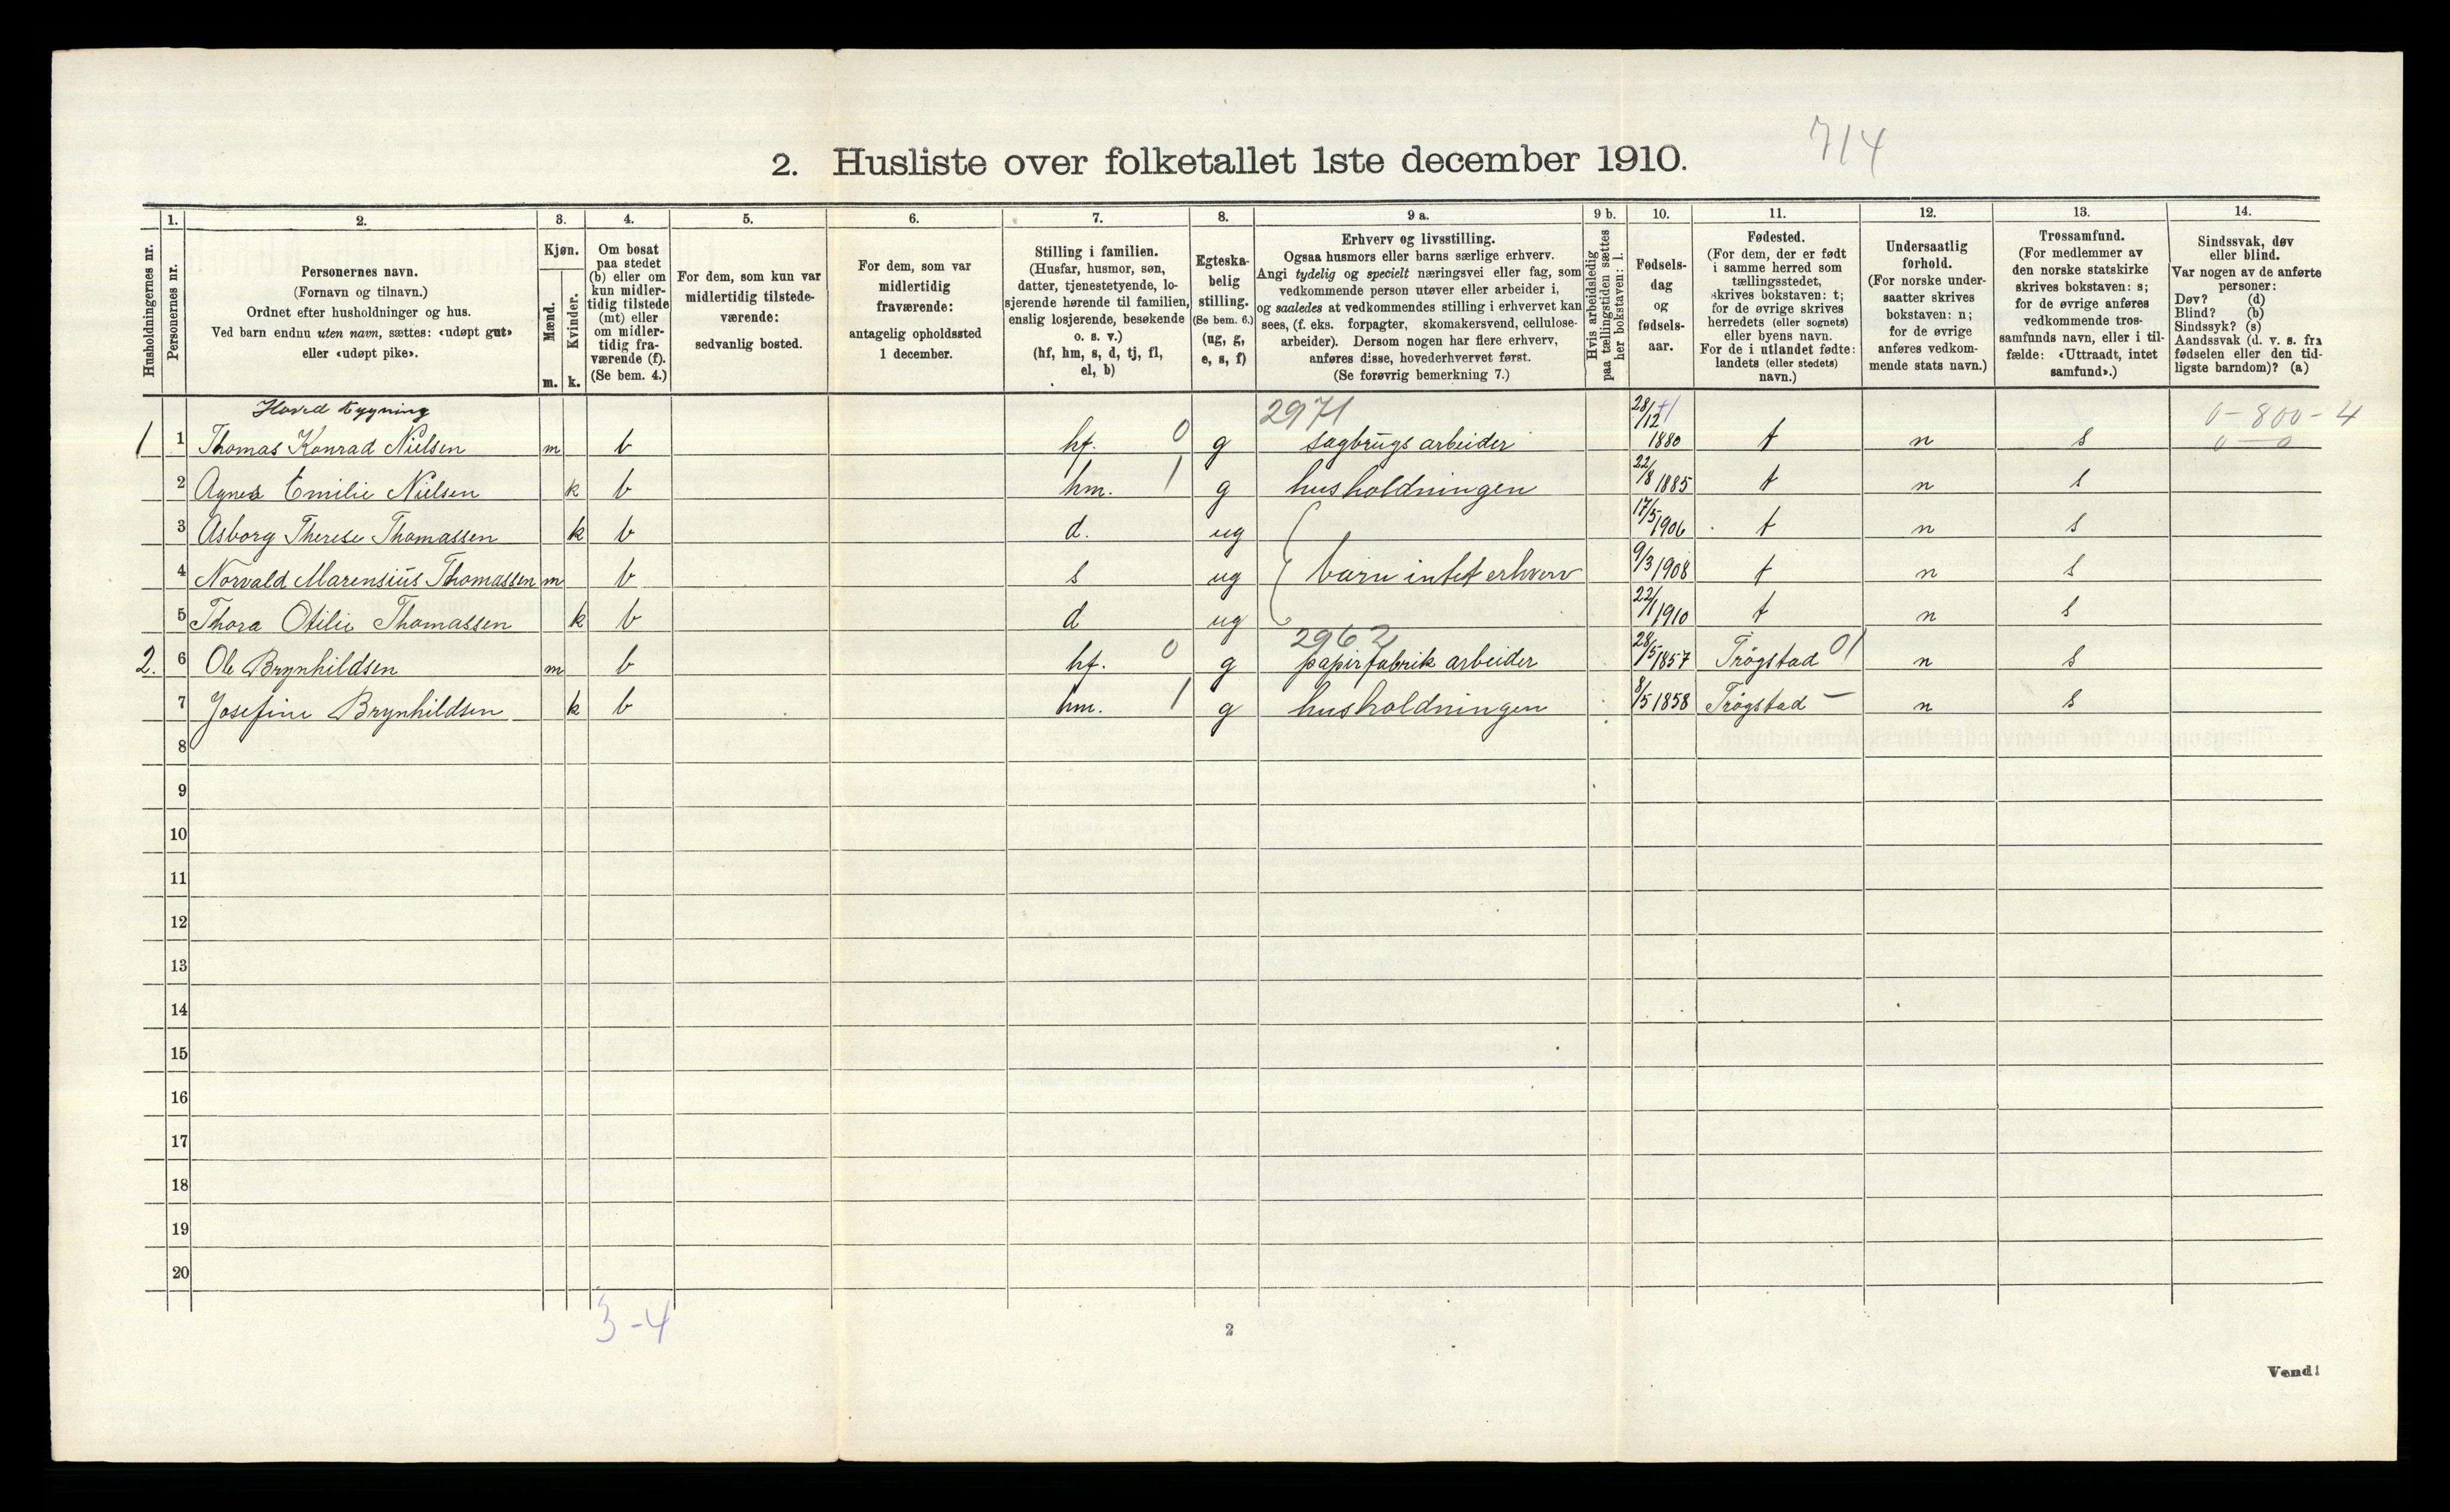 714
2. Husliste over folketallet 1ste december 1910.
Husholdningernes nr.
1.
Personernes nr.
2.
Personernes navn.
(Fornavn og tilnavn.)
Ordnet efter husholdninger og hus.
Ved barn endnu uten navn, sættes: «udøpt gut»
eller «udøpt pike».
3.
Kjøn.
Mænd.
Kvinder.
m.
k.
4.
Om bosat
paa stedet
(b) eller om
kun midler-
tidig tilstede
(mt) eller
om midler-
tidig fra-
værende (f).
(Se bem. 4.)
5.
For dem, som kun var
midlertidig tilstede-
værende:
sedvanlig bosted.
6.
For dem, som var
midlertidig
fraværende:
antagelig opholdssted
1 december.
7.
Stilling i familien.
(Husfar, husmor, søn,
datter, tjenestetyende, lo-
sjerende hørende til familien,
enslig losjerende, besøkende
o. s. v.)
(hf, hm, s, d, tj, fl,
el, b)
8.
Egteska-
belig
stilling.
(Se bem. 6.)
(ug, g,
e, s, f)
9 a.
Erhverv og livsstilling.
Ogsaa husmors eller barns særlige erhverv.
Angi tydelig og specielt næringsvei eller fag, som
vedkommende person utøver eller arbeider i,
og saaledes at vedkommendes stilling i erhvervet kan
sees, (f. eks. forpagter, skomakersvend, cellulose-
arbeider). Dersom nogen har flere erhverv,
anføres disse, hovederhvervet først.
(Se forøvrig bemerkning 7.)
9 b.
Hvis arbeidsledig
paa tællingstiden sættes
her bokstaven: l.
10.
Fødsels-
dag
og
fødsels-
aar.
11.
Fødested.
(For dem, der er født
i samme herred som
tællingsstedet,
skrives bokstaven: t;
for de øvrige skrives
herredets (eller sognets)
eller byens navn.
For de i utlandet fødte:
landets (eller stedets)
navn.)
12.
Undersaatlig
forhold.
(For norske under-
saatter skrives
bokstaven: n;
for de øvrige
anføres vedkom-
mende stats navn.)
13.
Trossamfund.
(For medlemmer av
den norske statskirke
skrives bokstaven: s;
for de øvrige anføres
vedkommende tros-
samfunds navn, eller i til-
fælde: «Uttraadt, intet
samfund».)
14.
Sindssvak, døv
eller blind.
Var nogen av de anførte
personer:
Døv? (d)
Blind? (b)
Sindssyk? (s)
Aandssvak (d. v. s. fra
fødselen eller den tid-
ligste barndom)? (a)
Hoved bygning 2971 0-800-4
1 1 Thomas Konrad Nielsen m b hf. 0 g sagbrugs arbeider 28/12 1880 t n s 0-0
2 Agnes Emilie Nielsen k b hm. 1 g husholdningen 22/8 1885 t n s
3 Asborg Therese Thomassen k b d. ug 17/5 1906 t n s
4 Norvald Marensius Thomassen m b s ug barn intet erhverv 9/3 1908 t n s
5 Thora Otilie Thomassen k b d ug 22/1 1910 t n s
2962
2. 6 Ole Brynhildsen m b hf. 0 g papirfabrik arbeider 28/5 1857 Trøgstad 01 n s
7 Josefine Brynhildsen k b hm. 1 g husholdningen 8/5 1858 Trøgstad — n s
8
9
10
11
12
13
14
15
16
17
18
19
20
3-4
2
Vend!